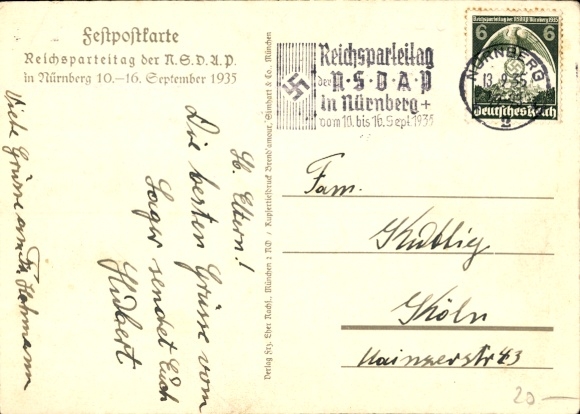 Festpostkarte
Reichsparteitag der N.S.D.A.P.
in Nürnberg 10.–16. September 1935
Lb. Eltern!
Die besten Grüsse vom
Lager sendet Euch
Hubert
Viele Grüsse an Fr. Hohmann
Verlag Frz. Eher Nachf., München 2 NO / Kupfertiefdruck Brend'amour, Simhart & Co., München
Reichsparteitag
der N·S·D·A·P
in Nürnberg +
vom 10. bis 16. Sept. 1935
Reichsparteitag der NSDAP Nürnberg 1935
6 6
Deutsches Reich
NÜRNBERG
13.9.35
2
Fam.
Köln
Mainzerstr 43
20 –